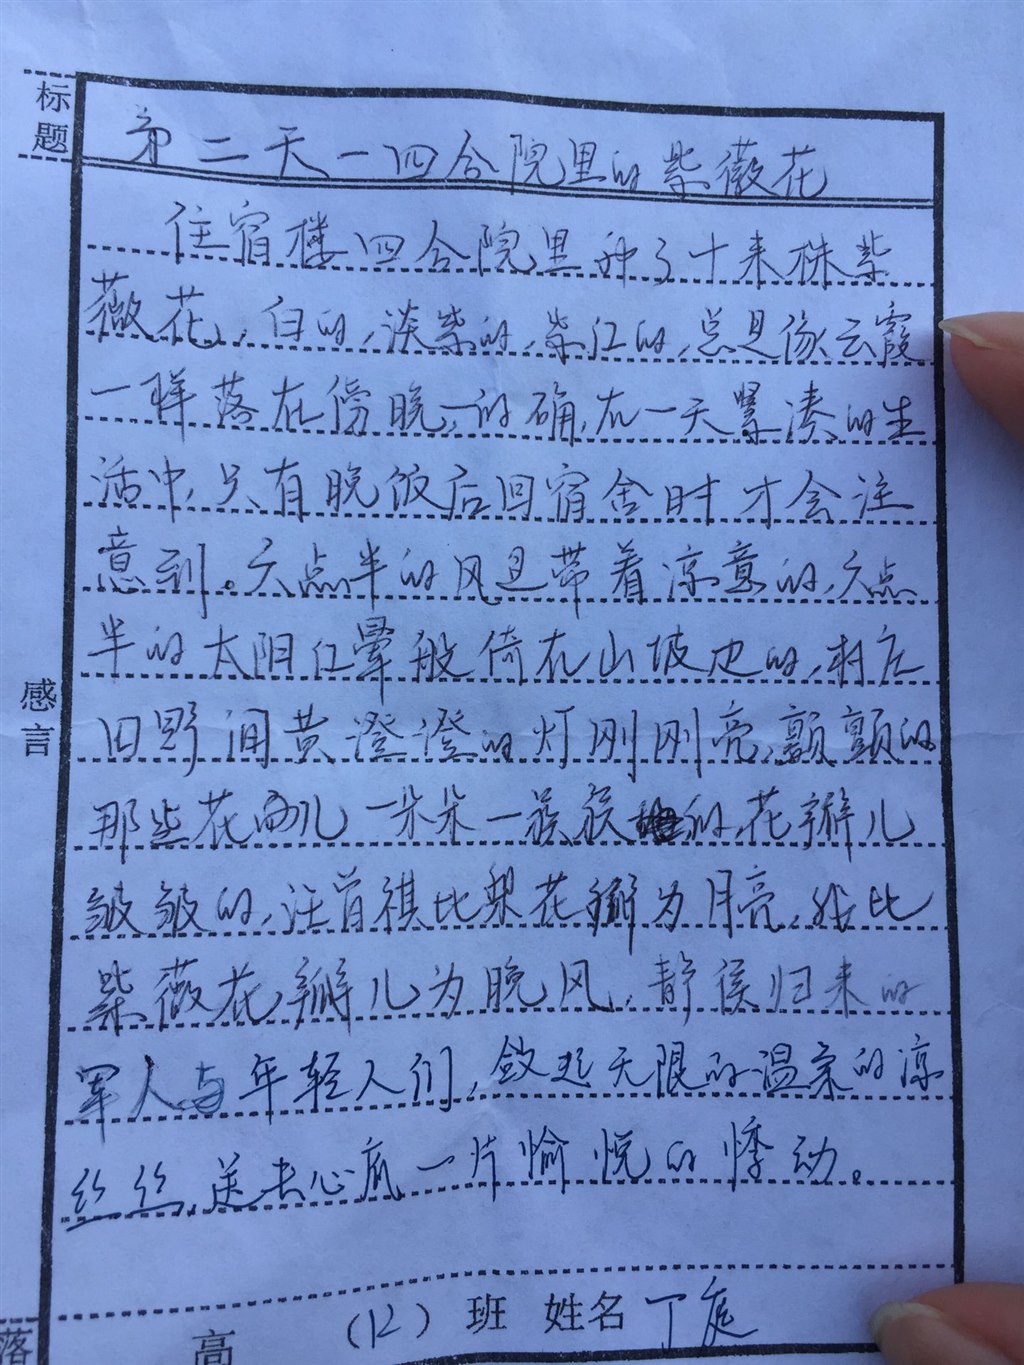 标题
第二天一四合院里的紫薇花
住宿楼四合院里种了十来株紫
薇花,白的,淡紫的,紫红的,总是像云霞
一样落在傍晚,的确,在一天紧凑的生
活中,只有晚饭后回宿舍时才会注
意到。六点半的风是带着凉意的,六点
半的太阳红晕般倚在山坡边的,村庄
田野间黄澄澄的灯刚刚亮,颤颤的
感言
那些花儿一朵朵一簇簇的,花瓣儿
皱皱的,汪曾祺比梨花瓣为月亮,我比
紫薇花瓣儿为晚风,静候归来的
军人与年轻人们,敛起无限的温柔的凉
丝丝,送去心底一片愉悦的悸动。
落 高 (12) 班 姓名 丁庭